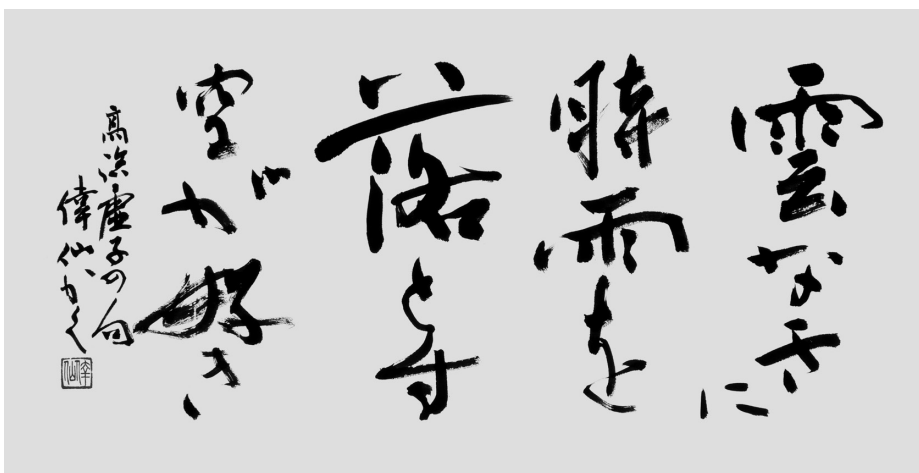 雲なきに
時雨を
落とす
空が好き
高浜虚子の句
偉仙かく
偉仙